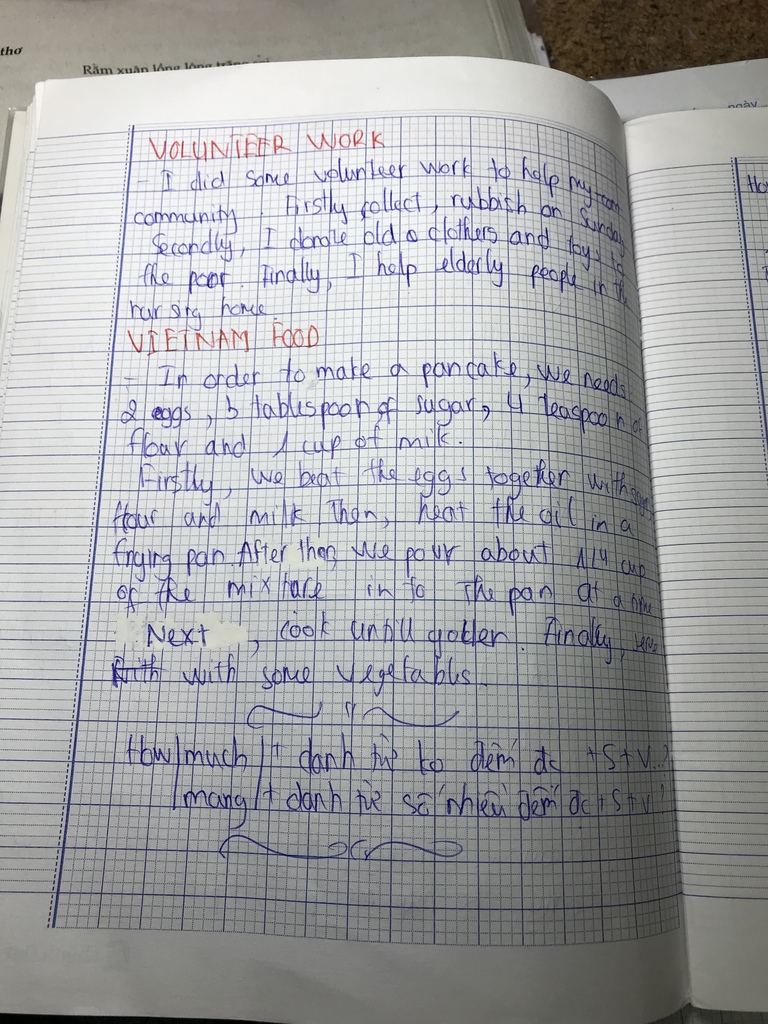 thơ
Rằm xuân lồng lộng trăng
ngày
VOLUNTEER WORK
- I did some volunteer work to help my
community. Firstly collect, rubbish on Sunday
Secondly, I donate old clothers and toys to
the poor. Finally, I help elderly people in the
nursing home.
VIETNAM FOOD
- In order to make a pancake, we needs
2 eggs, 5 tablespoon of sugar, 4 teaspoon of
flour and 1 cup of milk.
Firstly, we beat the eggs together with
flour and milk Then, heat the oil in a
frying pan. After than, we pour about 1/4 cup
of the mixture in to the pan at a time
Next, cook untill golden. Finally, serve
with some vegetables.
How much + danh từ ko đếm đc + S + V...?
many + danh từ số nhiều đếm đc + S + V?
Ho